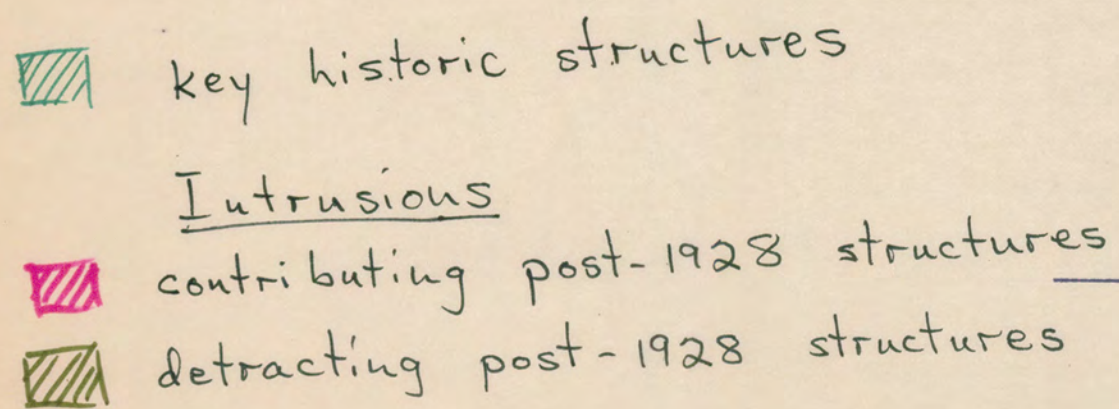 key historic structures
Intrusions
contributing post-1928 structures
detracting post-1928 structures